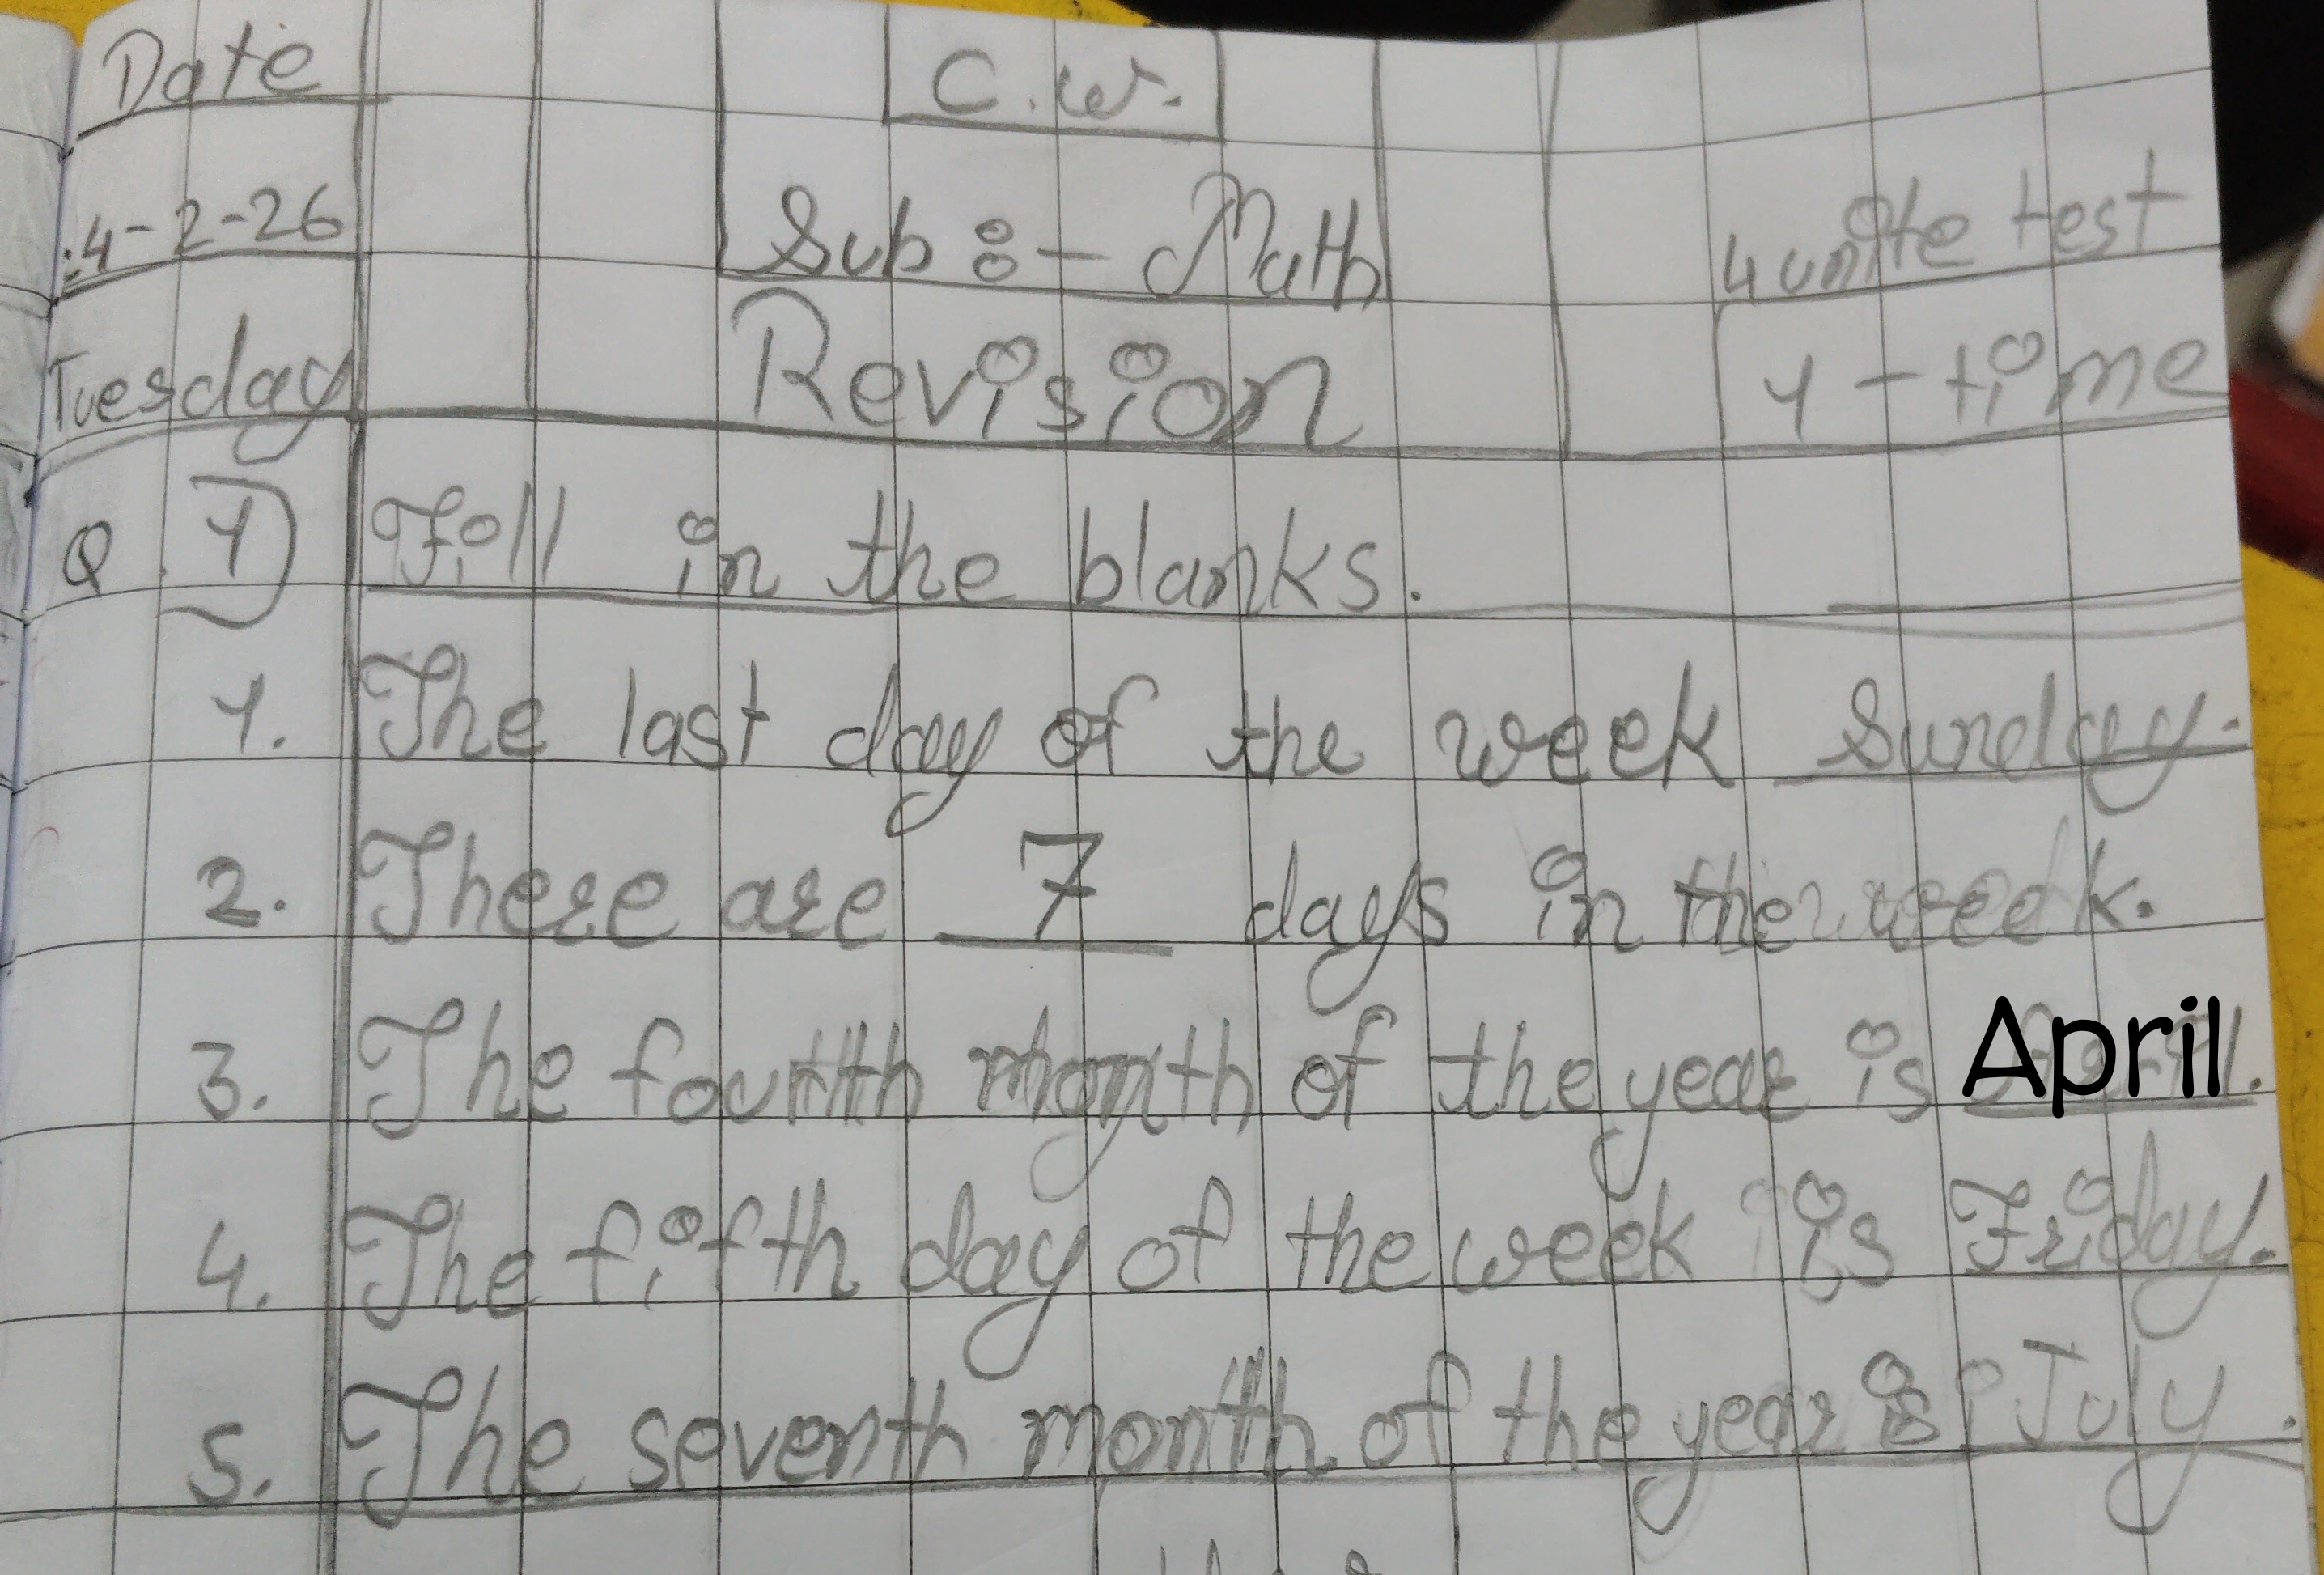 Date
C.W.
4-2-26
Sub :- Math
4 unite test
Tuesday
Revision
1 - time
Q. 1) Fill in the blanks.
1. The last day of the week Sunday.
2. There are 7 days in the week.
3. The fourth month of the year is April.
4. The fifth day of the week is Friday.
5. The seventh month of the year is July.